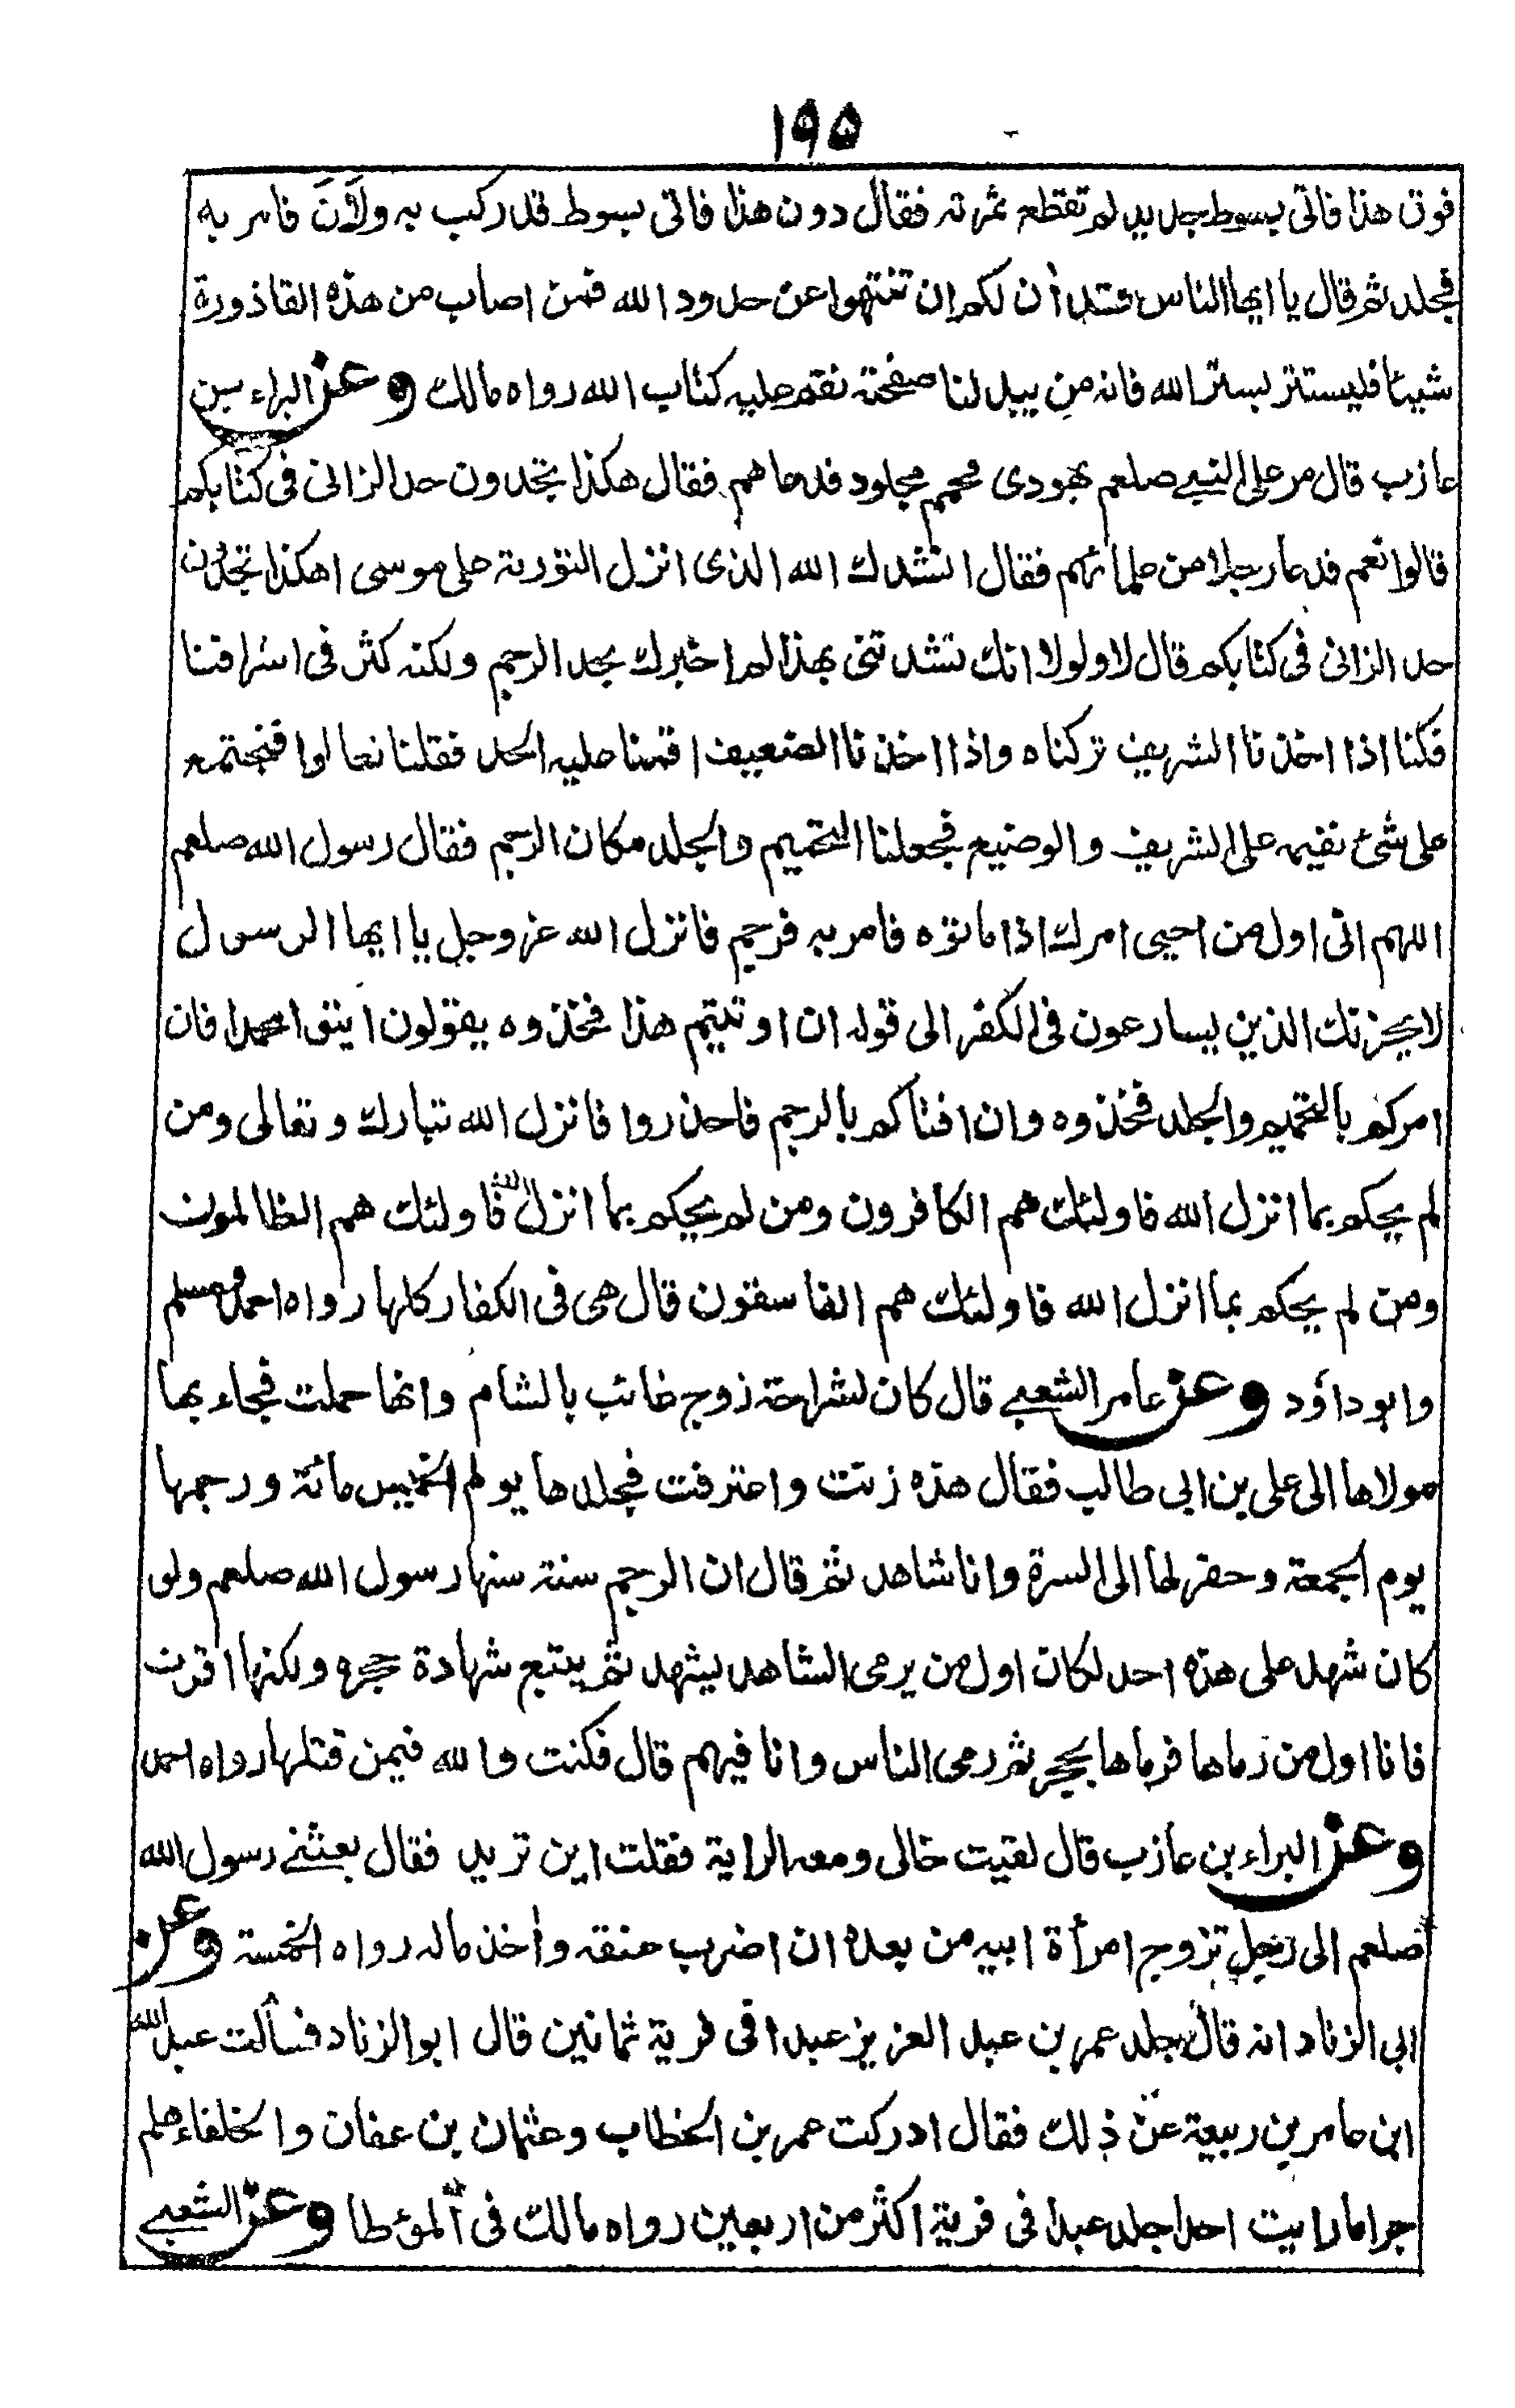 ١٩٥
فوق هذا فاتى بسوط جديد لم تقطع ثمرته فقال دون هذا فاتى بسوط قد ركب به ولَأنَ فامر به
فجلد ثم قال يا ايها الناس قد أن لكم ان تنتهوا عن حدود الله فمن اصاب من هذه القاذورة
شيئا فليستتر بستر الله فانه من يبد لنا صفحته نقم عليه كتاب الله رواه مالك وعن البراء بن
عازب قال مر على النبي صلعم يهودى محمم مجلود فدعاهم فقال هكذا تجدون حد الزانى فى كتابكم
قالوا نعم فدعا رجلا من علمائهم فقال انشدك الله الذى انزل التورية على موسى اهكذا تجدون
حد الزانى فى كتابكم قال لا ولولا انك نشدتنى بهذا لم اخبرك بحد الرجم ولكنه كثر فى اشرافنا
فكنا اذا اخذنا الشريف تركناه واذا اخذنا الضعيف اقمنا عليه الحد فقلنا تعالوا فنجتمع
على شئ نقيمه على الشريف والوضيع فجعلنا التحميم والجلد مكان الرجم فقال رسول الله صلعم
اللهم انى اول من احيى امرك اذ اماتوه فامر به فرجم فانزل الله عز وجل يا ايها الرسول
لا يحزنك الذين يسارعون فى الكفر الى قوله ان اوتيتم هذا فخذوه يقولون ايتوا محمدا فان
امركم بالتحميم والجلد فخذوه وان افتاكم بالرجم فاحذروا فانزل الله تبارك وتعالى ومن
لم يحكم بما انزل الله فاولئك هم الكافرون ومن لم يحكم بما انزل الله فاولئك هم الظالمون
ومن لم يحكم بما انزل الله فاولئك هم الفاسقون قال هى فى الكفار كلها رواه احمد ومسلم
وابو داؤد وعن عامر الشعبي قال كان لشراحة زوج غائب بالشام وانها حملت فجاء بها
مولاها الى على بن ابى طالب فقال هذه زنت واعترفت فجلدها يوم الخميس مائة ورجمها
يوم الجمعة وحفر لها الى السرة وانا شاهد ثم قال ان الرجم سنة سنها رسول الله صلعم ولو
كان شهد على هذه احد لكان اول من يرمى الشاهد يشهد ثم يتبع شهادة حجره ولكنها اقرت
فانا اول من رماها فرماها بحجر ثم رمى الناس وانا فيهم قال فكنت والله فيمن قتلها رواه احمد
وعن البراء بن عازب قال لقيت خالى ومعه الراية فقلت اين تريد فقال بعثنى رسول الله
صلعم الى رجل تزوج امرأة ابيه من بعده ان اضرب عنقه وأخذ ماله رواه الخمسة وعن
ابى الزناد انه قال جلد عمر بن عبد العزيز عبدا فى فرية ثمانين قال ابو الزناد فسألت عبد الله
ابن عامر بن ربيعة عن ذلك فقال ادركت عمر بن الخطاب وعثمان بن عفان والخلفاء هلم
جرا ما رايت احدا جلد عبدا فى فرية اكثر من اربعين رواه مالك فى المؤطا وعن الشعبي